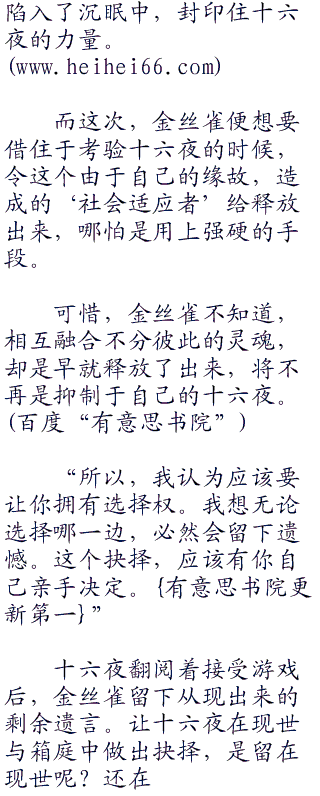 陷入了沉眠中，封印住十六
夜的力量。
(www.heihei66.com)
而这次，金丝雀便想要
借住于考验十六夜的时候，
令这个由于自己的缘故，造
成的‘社会适应者’给释放
出来，哪怕是用上强硬的手
段。
可惜，金丝雀不知道，
相互融合不分彼此的灵魂，
却是早就释放了出来，将不
再是抑制于自己的十六夜。
(百度“有意思书院”)
“所以，我认为应该要
让你拥有选择权。我想无论
选择哪一边，必然会留下遗
憾。这个抉择，应该有你自
己亲手决定。{有意思书院更
新第一}”
十六夜翻阅着接受游戏
后，金丝雀留下从现出来的
剩余遗言。让十六夜在现世
与箱庭中做出抉择，是留在
现世呢？还在